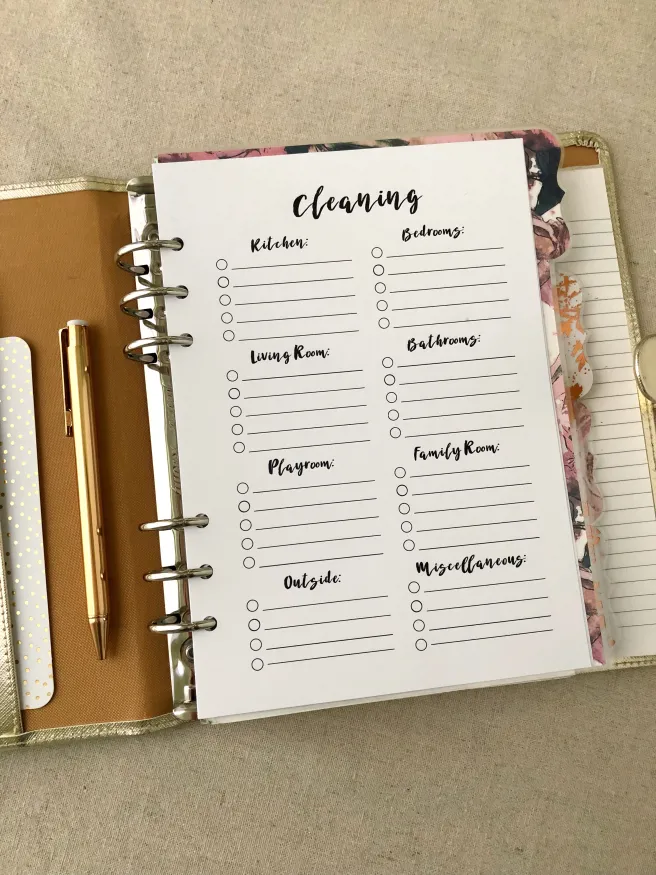 Cleaning
Kitchen:
Bedrooms:
Living Room:
Bathrooms:
Playroom:
Family Room:
Outside:
Miscellaneous: